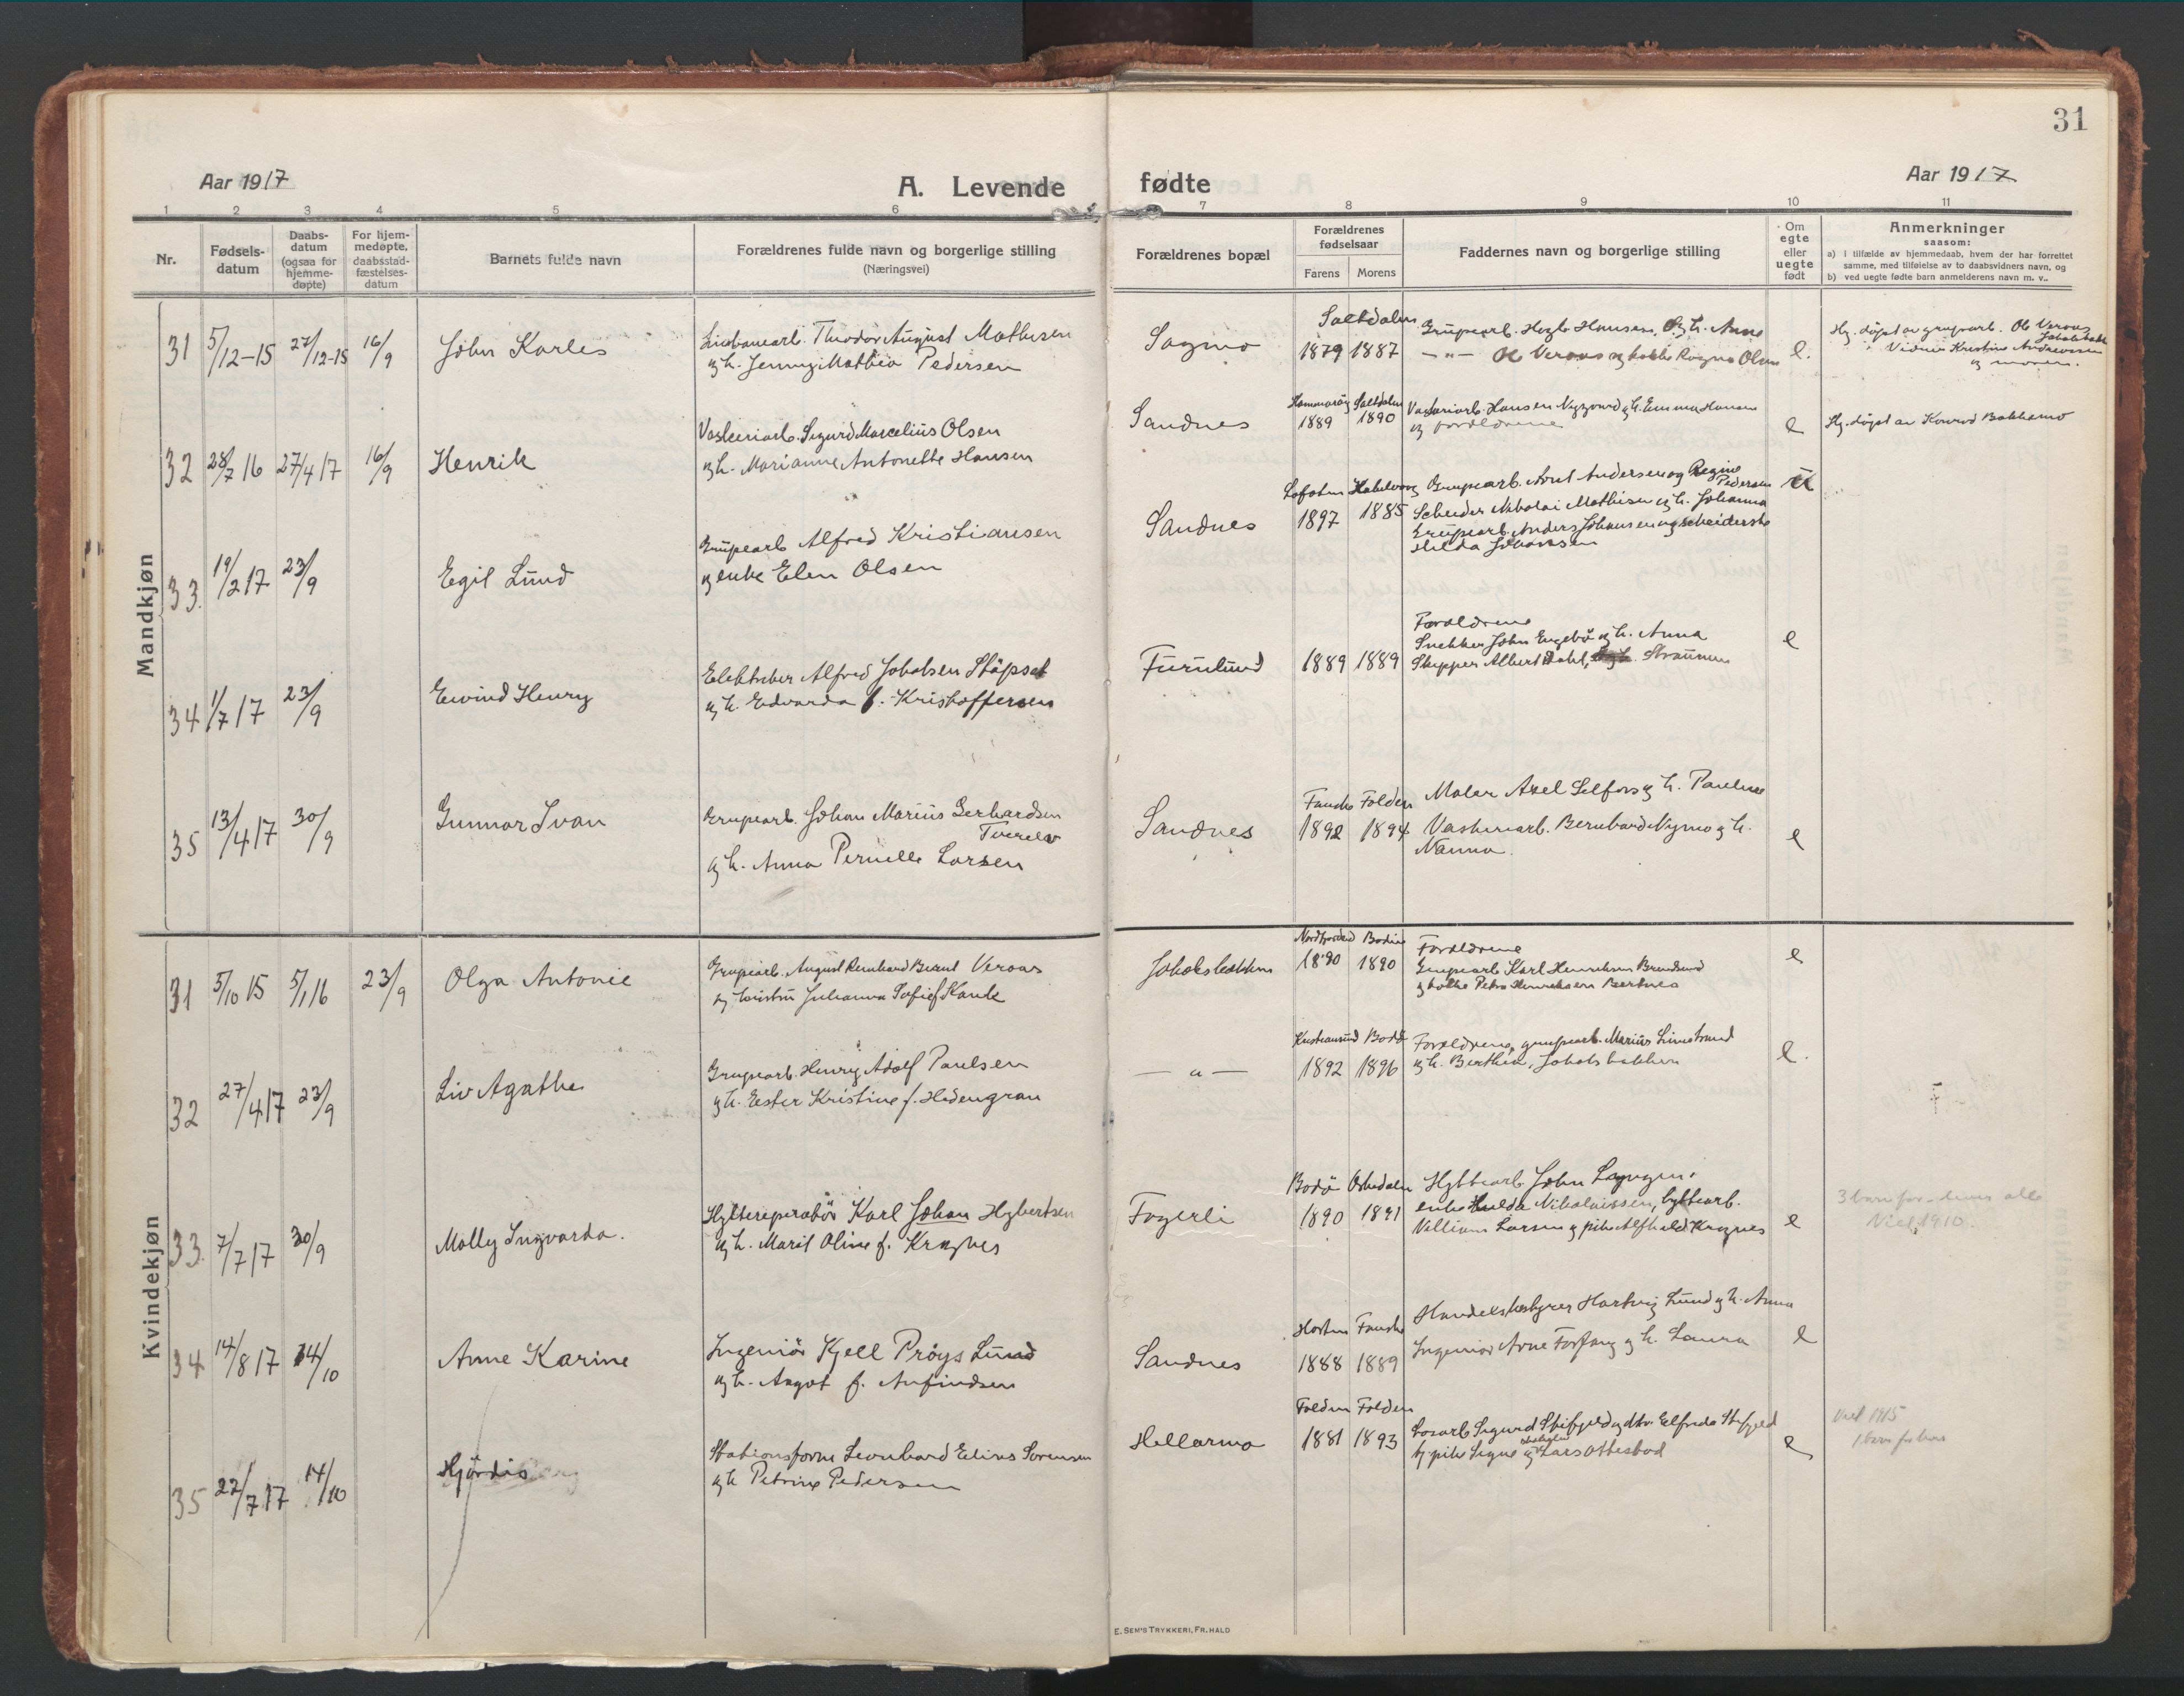 31
Aar 1917
A. Levende fødte
Aar 1917
1 2 3 4 5 6 7 8 9 10 11
Nr.
Fødsels-
datum
Daabs-
datum
(ogsaa for
hjemme-
døpte)
For hjem-
medøpte,
daabsstad-
fæstelses-
datum
Barnets fulde navn
Forældrenes fulde navn og borgerlige stilling
(Næringsvei)
Forældrenes bopæl
Forældrenes
fødselsaar
Farens Morens
Faddernes navn og borgerlige stilling
Om
egte
eller
uegte
født
Anmerkninger
saasom:
a) i tilfælde av hjemmedaab, hvem der har forrettet
samme, med tilføielse av to daabsvidners navn, og
b) ved uegte fødte barn anmelderens navn m. v..
Mandkjøn
31 5/12-15 27/12-15 16/9 John Karles
Theodor August Mathisen
og h. Jenny Mathea Pedersen
Sagmo
Saltdalen
1879 1887
Grupearb. Hansen, og h. Anna
—"— Ol Veraas og Ragna Olsen
e.
Hj. døpt av gruparb. Ol Veraas
Jakobsbakk
Vidner Kristine Andreassen
og moren.
32 28/7 16 27/4 17 16/9 Henrik
Vaskeriarb. Sigurd Marcelius Olsen
og h. Marianne Antonette Hansen
Sandnes
Hammarøy Saltdalen
1889 1890
Vaskeriarb. Hansen Nygaard og h. Emma Hansen
og forældrene
e
Hj. døpt av Konrad Bakkemo
33. 19/2 17 23/9 Egil Lund
Grupearb Alfred Kristiansen
og enke Elen Olsen
Sandnes
Lofoten
1897 1885
Gruparb. Arnt Andersen og Regine
Pedersen
Scheider Nikolai Mathisen og h. Johanna
Gruparb. Anders Johansen og scheiderske
Hilda Johansen
u
34 1/7 17 23/9 Eivind Henry
Elektriker Alfred Jakobsen Støpset
og h. Edvarda f. Kristoffersen
Furulund
1889 1889
Forældrene
Snekker John Engebø og h. Anna
Skipper Albert Dahl, Straumen
e
35 13/4 17 30/9 Gunnar Ivan
Grupearb. Johan Marius Gerhardsen
Tverelv
og h. Anna Pernelle Larsen
Sandnes
Fauske Folden
1892 1894
Maler Axel Selfors og h. Pauline
Vaskeriarb. Bernhard Nymo og h.
Nanna.
e
Kvindekjøn
31 5/10 15 5/1 16 23/9 Olga Antonie
Grupearb. August Bernhard Bernt Veraas
og hustru Johanna Sofie f Hauk
Jakobsbakken
Nordfjorden Bodin
1890 1890
Forældrene
Gruparb Karl Henriksen Brundsund
og kokke Petra Henriksen Bertnes
e
32 27/4 17 23/9 Liv Agathe
Grupearb. Henry Adolf Paulsen
og h. Ester Kristine f. Hedengran
— " —
Kristiansund Bodø
1892 1896
Forældrene, gruparb. Marius Linestrand
og h. Berthea, Jakobsbakken
e.
33. 7/7 17 30/9 Molly Ingvarda.
Hyttereperatør Karl Johan Hybertsen
og h. Marit Oline f. Kragnes
Fagerli
Bodø Orkedalen
1890 1891
Hyttearb. John Lyngen,
enke Hulda Nikolaissen, hyttearb.
Villiam Larsen og pike Alfhild Kragnes
e
3 barn før - hvis alle
Viet 1910.
34 14/8 17 14/10 Anne Karine
Ingeniør Kjell Prøys Lund
og h. Aagot f. Anfindsen
Sandnes
Horten Fauske
1888 1889
Handelsbestyrer Hartvig Lund og h. Anna
Ingeniør Arne Forfang og h. Laura
e
35 22/7 17 14/10 Hjørdis
Stationsform Leonhard Elius Sorensen
og h Petrine Pedersen
Hellarmo
Folden Folden
1881 1893
Losarb Sigurd Stifjeld og dtr. Elfrida Stifjeld
tj. pike Signe og Lars Ottestad
e
Viet 1915
1 barn før
E. SEM'S TRYKKERI, FR.HALD